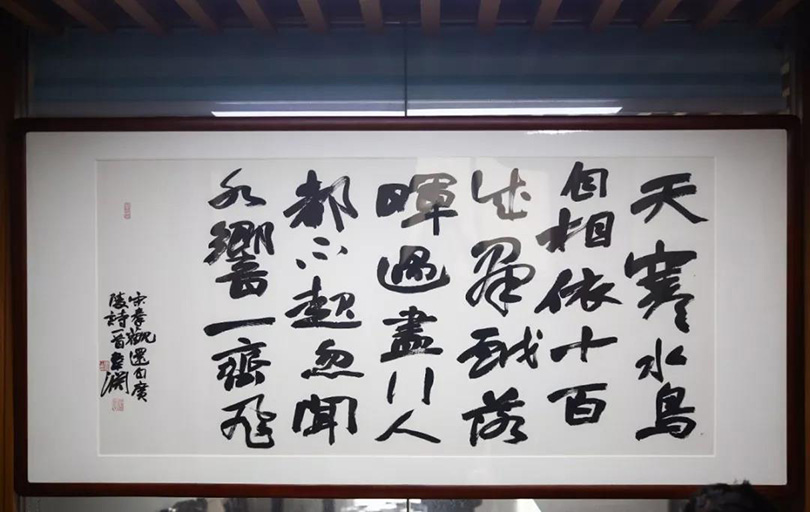 天寒水鳥
自相依十百
為群戲落
暉過盡行人
都不起忽聞
氷響一齊飛
宋秦觀還自廣
陵詩一首